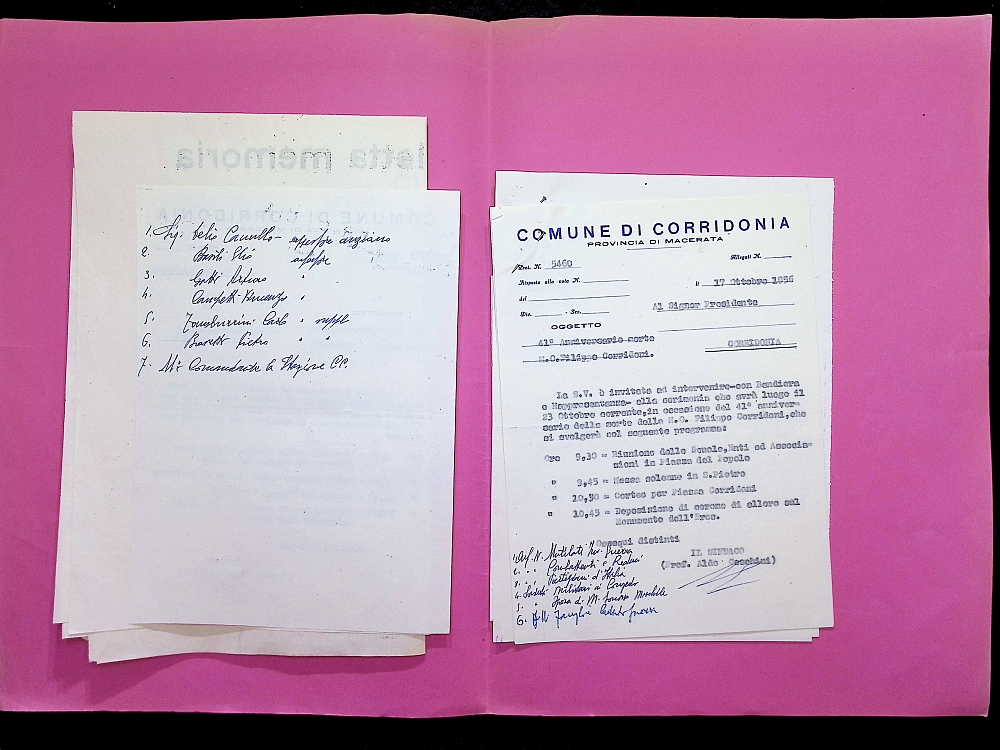 letta memoria
COMUNE DI CORRIDONIA
1. Sig. Celio Camillo - assessore anziano
2. Basili Elio assessore
3. Gatti Arturo "
4. Vincenzo "
5. Carlo " suppl
6. Pietro " "
7. Comandante la Stazione CC.
COMUNE DI CORRIDONIA
PROVINCIA DI MACERATA
Prot. N. 5460
Allegati N.
Risposta alla nota N.
li 17 Ottobre 1956
del
Div. Sez.
Al Signor Presidente
OGGETTO
41° Anniversario morte
M.O.Filippo Corridoni.
CORRIDONIA
La S.V. è invitata ad intervenire-con Bandiera
e Rappresentanza- alla cerimonia che avrà luogo il
23 Ottobre corrente,in occasione del 41° anniver-
sario della morte della M.O. Filippo Corridoni,che
si svolgerà col seguente programma:
Ore 9,30 = Riunione delle Scuole,Enti ed Associa-
zioni in Piazza del Popolo
" 9,45 = Messa solenne in S.Pietro
" 10,30 = Corteo per Piazza Corridoni
" 10,45 = Deposizione di corone di alloro sul
Monumento dell'Eroe.
Ossequi distinti
IL SINDACO
(Prof. Aldo Ceschini)
1. Ass. N. Mutilati Inv. Guerra
2. " " Combattenti e Reduci
3. " " Partigiani d'Italia
4. Militari in Congedo
5. "
6. Famiglie Caduti Guerra